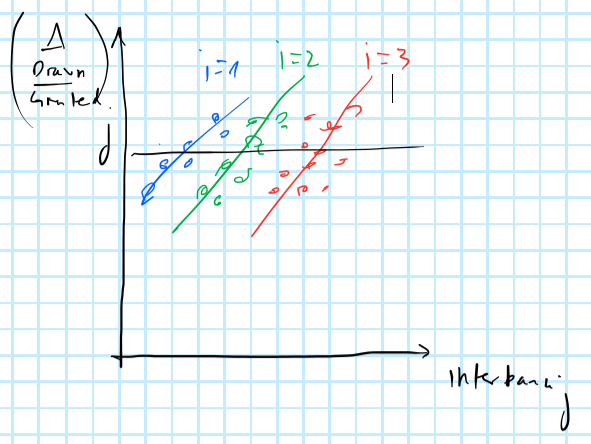 Δ
Drawn
Granted.
j
i=1
i=2
i=3
Interbank
j